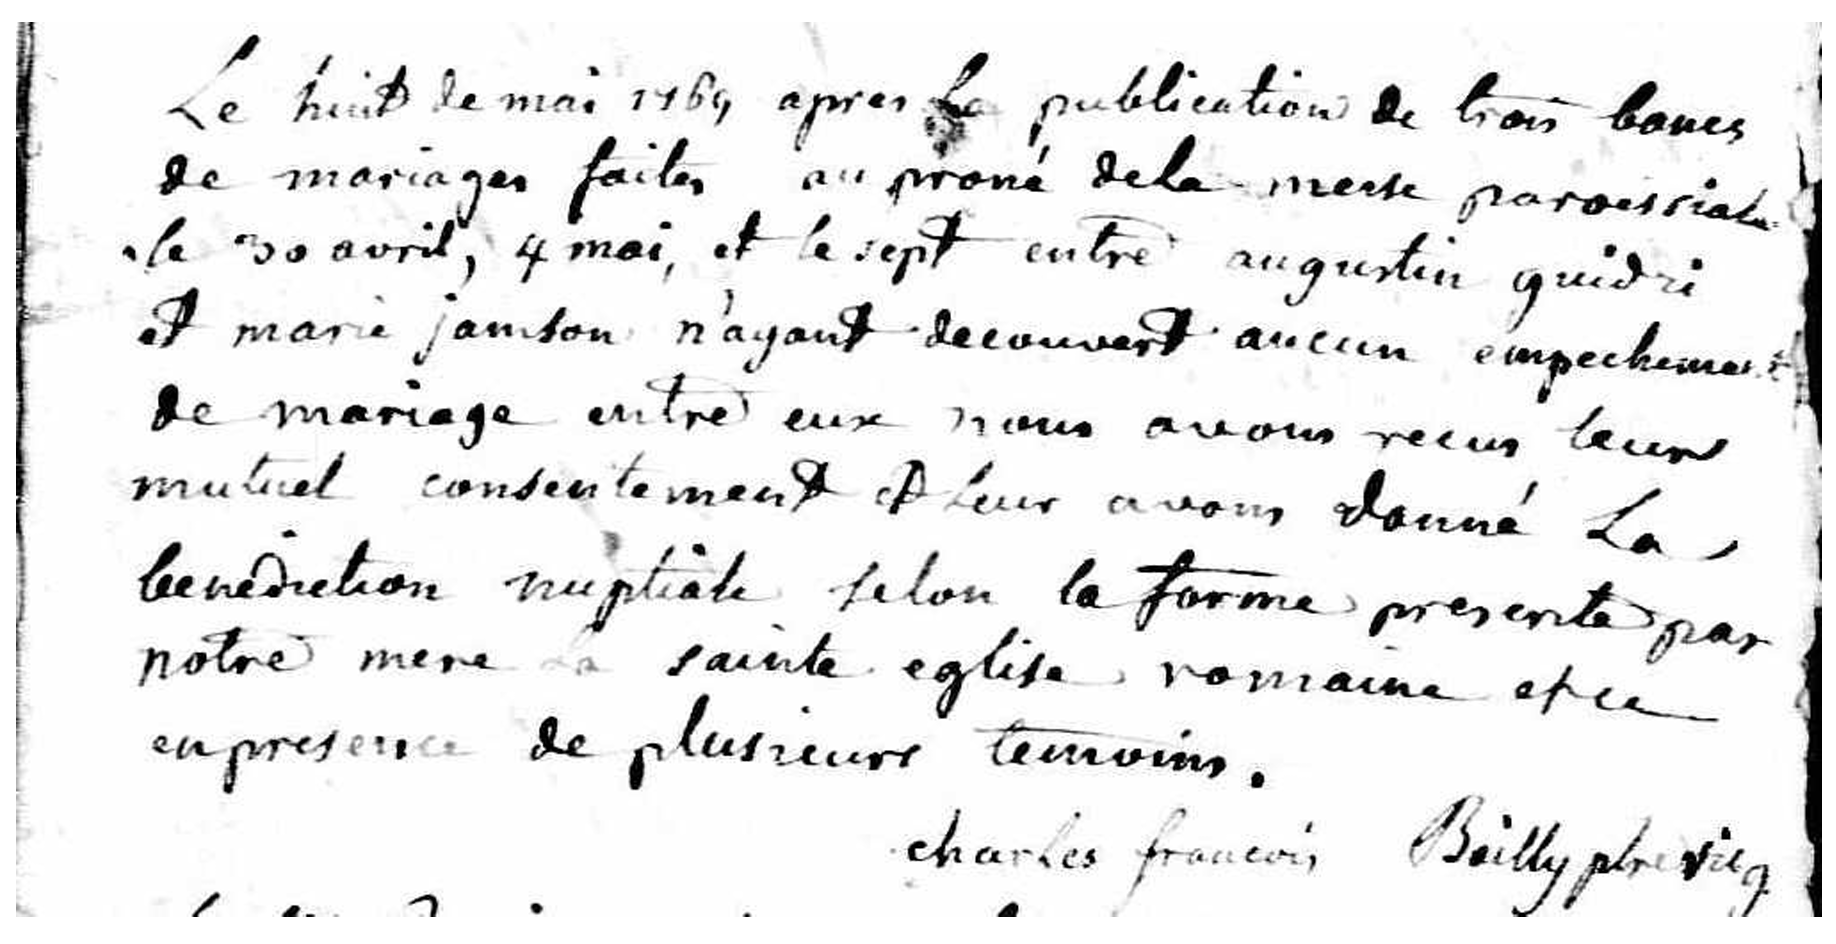 Le huit de mai 1769 apres La publication de trois bancs
de mariages faites au proné dela messe paroissiale
le 30 avril, 4 mai, et le sept entre augustin guidri
et marie jamson n'ayant decouvert aucun empechement
de mariage entre eux nous avons recus leurs
mutuel consentement et leur avons donné La
benediction nuptiale selon la forme prescrite par
notre mere la sainte eglise romaine et ce
en presence de plusieurs temoins.
charles francois Bailly ptre